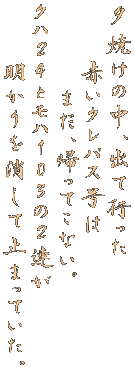 夕焼けの中 出て行った
赤いクレパス号は
まだ、帰ってこない。
クハ24とモハ103の2連が
明かりを消して止まっていた。